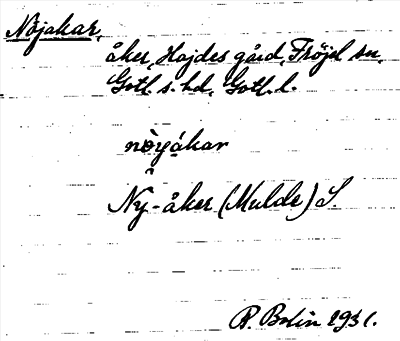 Nöjakar,
åker, Hajdes gård, Fröjel sn,
Gotl. s. hd, Gotl. l.
nòyákar
Ny-åker (Mulde) S.
R. Bolin 1931.